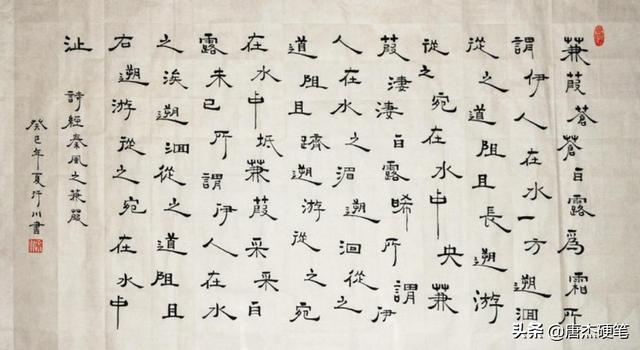 蒹葭蒼蒼白露爲霜所
謂伊人在水一方遡洄
從之道阻且長遡游
從之宛在水中央蒹
葭淒淒白露晞所謂伊
人在水之湄遡洄從之
道阻且躋遡游從之宛
在水中坻蒹葭采采白
露未已所謂伊人在水
之涘遡洄從之道阻且
右遡游從之宛在水中
沚
詩經秦風之蒹葭
癸巳年夏川書
头条 @唐杰硬笔